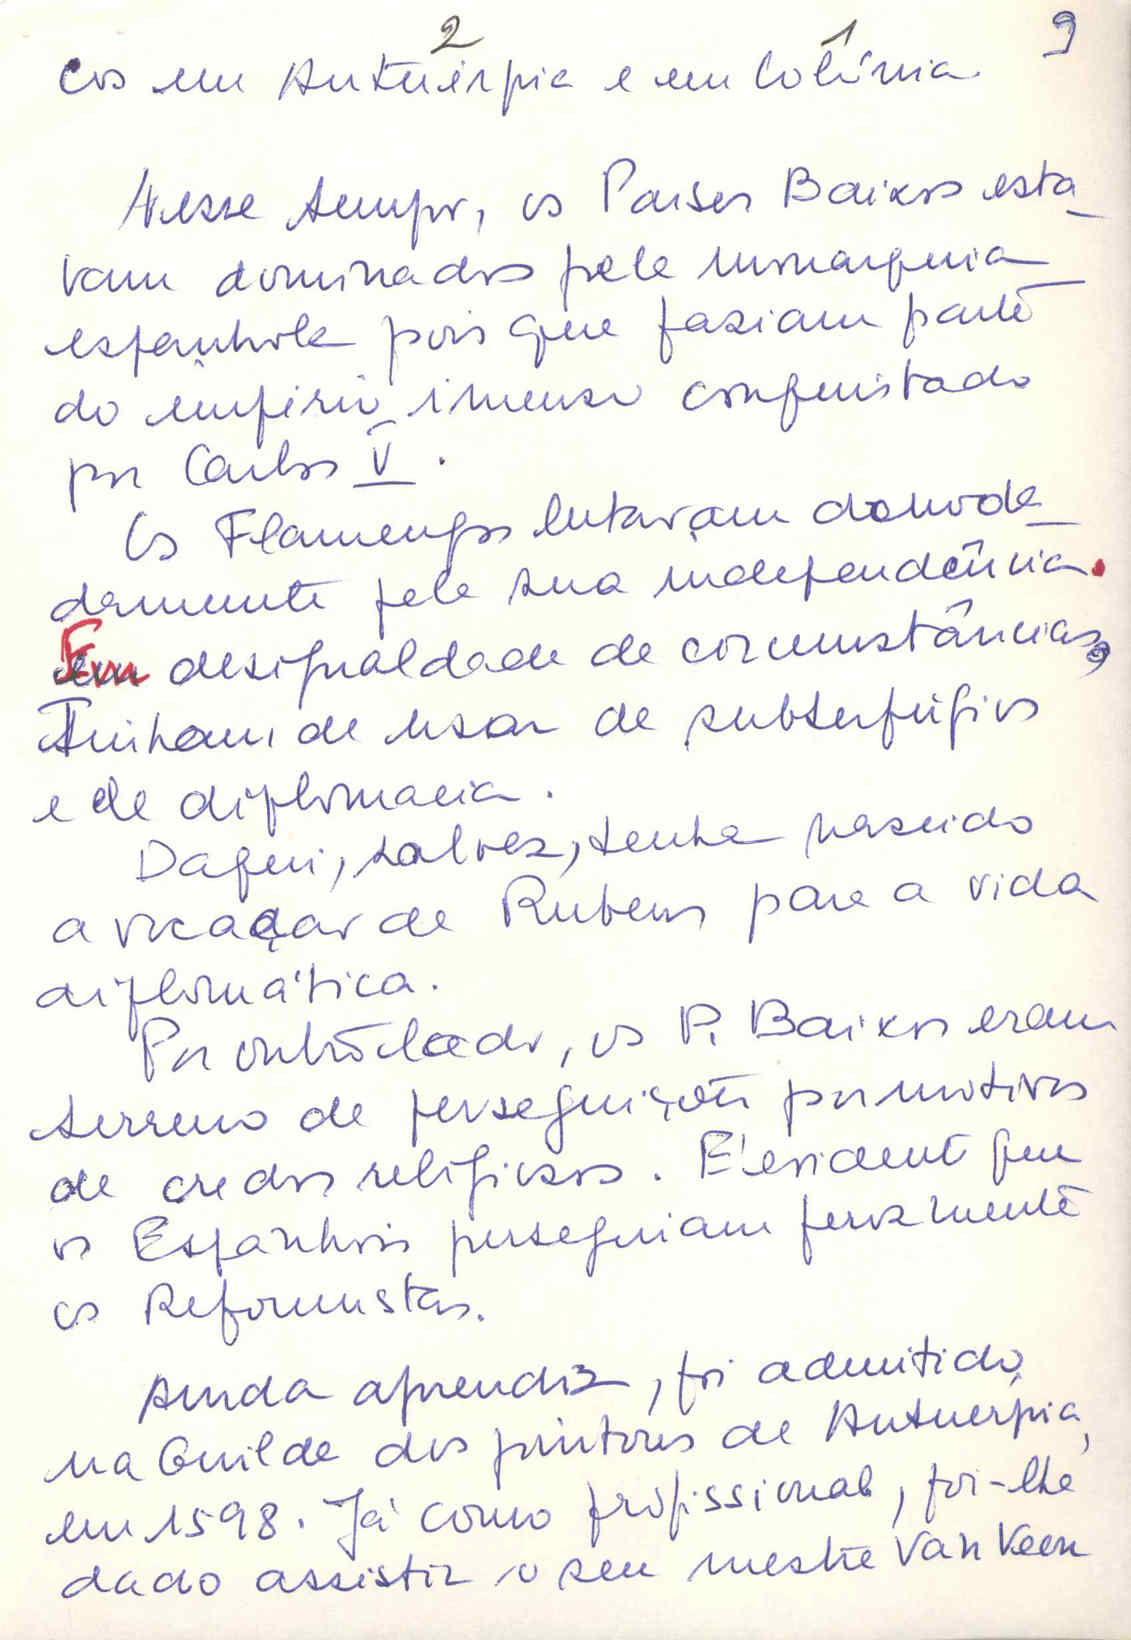 9
2 1
cos em Antuérpia e em Colónia.
Nesse tempo, os Paises Baixos esta_
vam dominados pela monarquia
espanhola pois que faziam parte
do império imenso conquistado
por Carlos V.
Os Flamengos lutavam denoda_
damente pela sua independência.
Em desigualdade de circunstâncias,
Tinham de usar de subterfúgios
e de diplomacia.
Daqui, talvez, tenha nascido
a vocação de Rubens para a vida
diplomática.
Por outro lado, os P. Baixos eram
terreno de perseguições por motivos
de credos religiosos. É evidente que
os Espanhois perseguiam ferozmente
os Reformistas.
Ainda aprendiz, foi admitido
na Guilde dos pintores de Antuerpia,
em 1598. Já como profissional, foi-lhe
dado assistir o seu mestre Van Veen